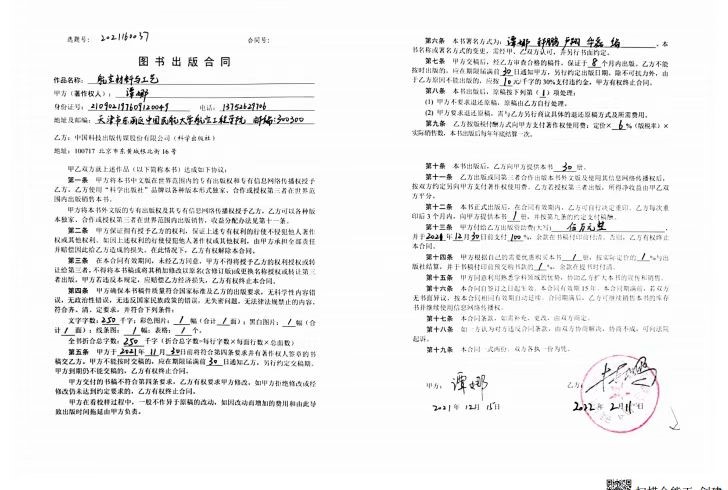 选题号：2021160037 合同号：
图书出版合同
作品名称：航空材料与工艺
甲方（著作权人）：谭娜
身份证号：210902197609120049 电话：13752629706
地址及邮编：天津市东丽区中国民航大学航空工程学院 邮编:300300
乙方：中国科技出版传媒股份有限公司（科学出版社）
地址：100717 北京市东黄城根北街 16 号
甲乙双方就上述作品（以下简称本书）达成如下协议：
第一条 甲方将本书中文版在世界范围内的专有出版权和专有信息网络传播权授予
乙方。乙方使用“科学出版社”品牌以各种版本形式独家、合作或授权第三者在世界范
围内出版销售本书。
甲方将本书外文版的专有出版权及其专有信息网络传播权授予乙方，乙方可以各种版
本独家、合作或授权第三者在世界范围内出版销售，收益分配办法见第十一条。
第二条 甲方保证拥有授予乙方的权利，保证上述专有权利的行使不侵犯他人著作
权或其他权利。如因上述权利的行使侵犯他人著作权或其他权利，由甲方承担全部责任
并赔偿因此给乙方造成的损失。在此情况下，乙方有权解除本合同。
第三条 在本合同有效期间，未经乙方同意，甲方不得将授予乙方的权利授权或转
让给第三者，不得将本书稿或将其稍加修改以原名(含修订版)或更换名称授权或转让第三
者出版。甲方若违反本规定，应赔偿乙方经济损失，乙方有权终止本合同。
第四条 甲方确保本书稿件质量符合国家标准及乙方的出版要求，无科学性内容错
误，无政治性错误，无违反国家民族政策的错误，无失密问题，无法律法规禁止的内容，
符合齐、清、定要求，并符合如下条件：
文字字数：250 千字；彩色图片： 1 幅（合计 1 面）；黑白图片： 1 幅（合
计 1 面）；线条图： 1 幅；表格： 1 个。
全书折合总字数：250 千字（折合总字数=每行字数×每面行数×总面数）
第五条 甲方于 2021 年 11 月 30 日前将符合第四条要求并有著作权人签章的书
稿交乙方。甲方不能按时交稿的，应在期限届满前 30 日通知乙方，另行约定交稿期。
甲方到期仍不能交稿的，乙方有权终止合同。
甲方交付的书稿不符合第四条要求，乙方有权要求甲方修改，如甲方拒绝修改或经
修改仍未达到约定要求的，乙方有权终止合同。
甲方在看校样过程中，一般不作异于原稿的改动，如因改动而增加的费用和由此导
致出版时间拖延由甲方负责。
第六条 本书署名方式为：谭娜 编，本
书名称或署名方式的变更，需经甲、乙双方认可，并另行书面约定。
第七条 甲方交稿后，经乙方审查合格的稿件，保证于 8 个月内出版。乙方不能
按时出版的，应在期限届满前 30 日通知甲方，另行约定出版日期。除不可抗力外，由
于乙方原因不能出版的，应按 10 元/千字的 30%支付违约金，甲方有权终止合同。
第八条 本书出版后，原稿按下列第（ 1 ）项处理：
(1) 甲方不要求退还原稿，原稿由乙方自行处理。
(2) 甲方要求退还原稿，需与乙方另行商议具体的退还原稿方式及所需费用。
第九条 乙方按版税付酬方式向甲方支付著作权使用费：定价× 6 %（版税率）×
实际销售数，本书出版后每年年底结算一次。
第十条 本书出版后，乙方向甲方提供本书 30 册。
第十一条 乙方出版或同第三者合作出版本书外文版及使用其信息网络传播权后，
按双方约定另向甲方支付著作权使用费。乙方若授权第三者出版，所得净收益由甲乙双
方平分。
第十二条 本书正式出版后，在合同有效期内，乙方可自行决定重印。乙方每次重
印后 3 个月内，向甲方提供本书 1 册，并按第九条的约定支付稿酬。
第十三条 甲方付给乙方出版资助费(大写) 伍万元整
并于 2021 年 12 月 30 日前支付 100 %，余款在书稿付印前付清。否则，乙方有权终止
本合同。
第十四条 甲方根据自己的需要优惠购买本书 1 册，按实际定价的 1 %与出
版社结算，并于书稿付印前预交购书款的 1 %，余款在提书时付清。
第十五条 甲方同意利用熟悉学科领域的优势，协助乙方扩大本书的宣传和销售。
第十六条 本合同自签订之日起生效。本合同有效期 15 年。本合同期满前，若双方
无书面异议，按本合同相同有效期自动延续。合同期满后，乙方可继续销售本书的库存
书并继续使用信息网络传播权。
第十七条 本合同条款，如需补充、更改，由双方商定。
第十八条 如一方认为对方违反合同条款，由双方协商解决，协商不成，可向法院
起诉。
第十九条 本合同一式两份，双方各执一份为凭。
甲方：谭娜 乙方：
2021 年 12 月 15 日 2022 年 2 月 11 日